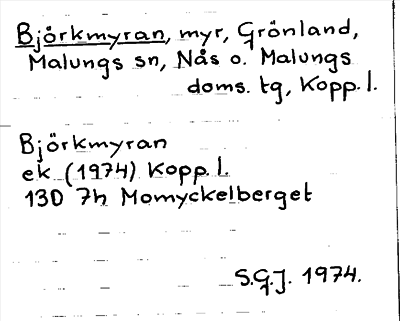 Björkmyran, myr, Grönland,
Malungs sn, Nås o. Malungs
doms. tg, Kopp. l.
Björkmyran
ek. (1974) Kopp. l.
13D 7h Momyckelberget
S.G.J. 1974.